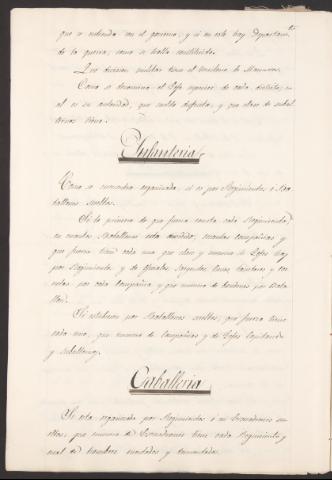 que se entienda con el gobierno, y si en este hay Departam.
de la guerra, como se halla constituido.
Que division militar tiene el territorio de Marruecos.
Como se denomina el Gefe superior de cada distrito, cu
al es su autoridad, que sueldo disfruta, y que clase de subal
ternos tiene.
Infanteria
Como se encuentra organizada, si es por Regimientos o Ba
tallones sueltos.
Si lo primero de que fuerza consta cada Regimiento,
en cuantos Batallones esta dividido, cuantas compañias y
que fuerza tiene cada una por clases y numero de Gefes hay
por Regimiento, y de oficiales Sargentos Cavos, tambores y cor
netas por cada compañia y que numero de hombres por Bata
llon.
Si estubiesen por Batallones sueltos, que fuerza tiene
cada uno, que numero de compañias y de Gefes Capitanes
y subalternos.
Caballeria
Si esta organizada por Regimientos ó en Escuadrones su
eltos, que numero de Escuadrones tiene cada Regimiento y
cual de hombres montados y desmontados.